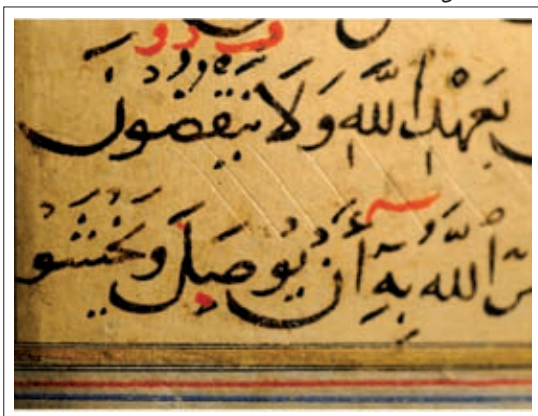 بِعَهْدِ اللَّهِ وَلَا يَنْقُضُونَ
اللَّهُ بِهِ أَنْ يُوصَلَ وَيَخْشَوْ